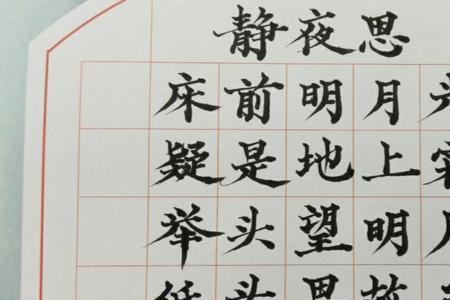 静夜思
床前明月
疑是地上
举头望明
头思故